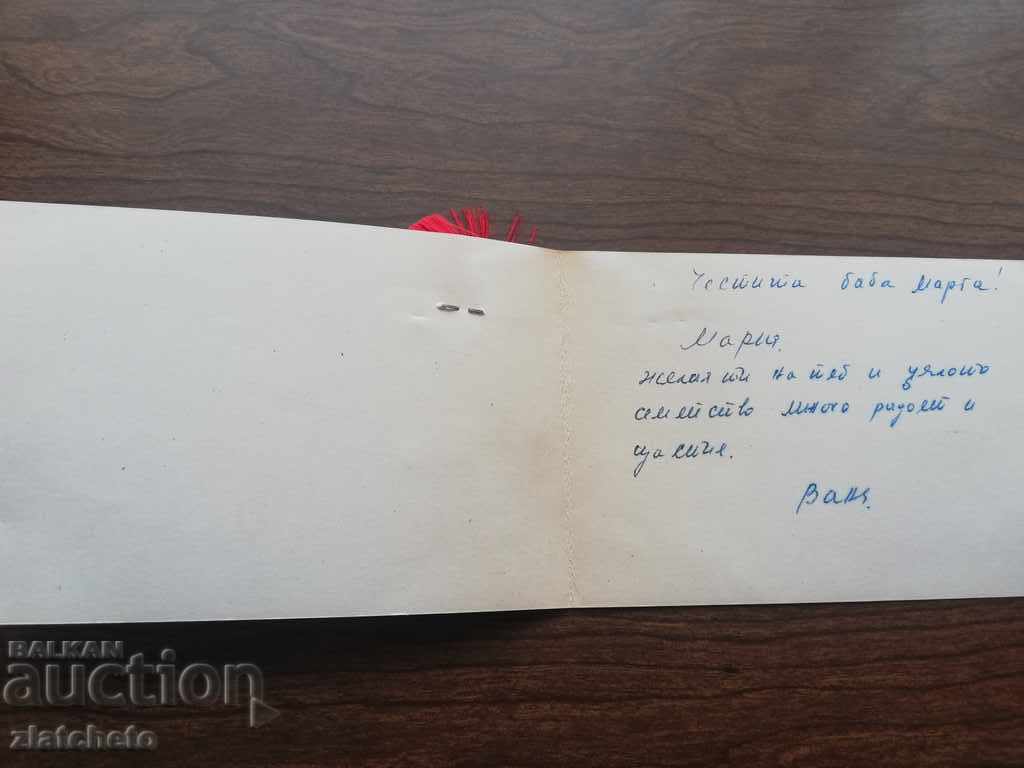 Честита баба Марта!
Мария,
желая ти на теб и цялото
семейство много радост и
щастие.
Ваня
BALKAN
auction
zlatcheto